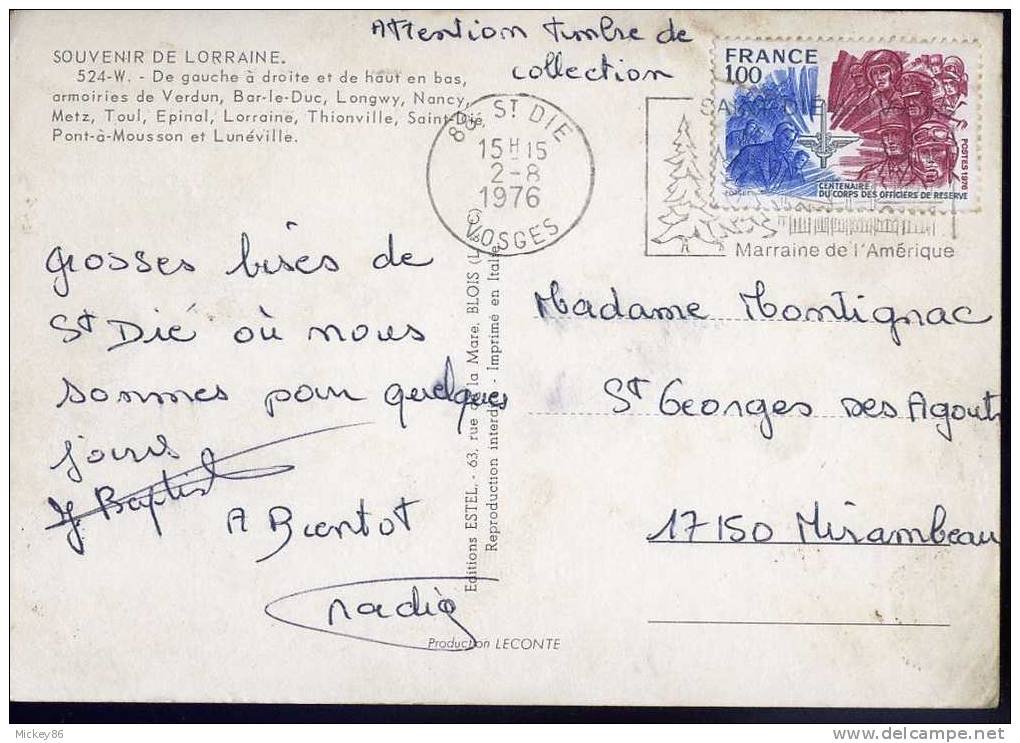 Attention timbre de
collection
SOUVENIR DE LORRAINE.
524-W. - De gauche à droite et de haut en bas,
armoiries de Verdun, Bar-le-Duc, Longwy, Nancy,
Metz, Toul, Epinal, Lorraine, Thionville, Saint-Dié,
Pont-à-Mousson et Lunéville.
88 ST DIE
15H15
2-8
1976
VOSGES
FRANCE
1,00
POSTES 1976
CENTENAIRE
DU CORPS DES OFFICIERS DE RESERVE
Marraine de l'Amérique
Grosses bises de
St Dié où nous
sommes pour quelques
jours
J. Baptist
A Bientot
Nadia
Editions ESTEL, - 63, rue de la Mare, BLOIS (L
Reproduction interdite - Imprimé en Italie
Production LECONTE
Madame Montignac
St Georges des Agout
17150 Mirambeau
Mickey86
http://www.delcampe.net